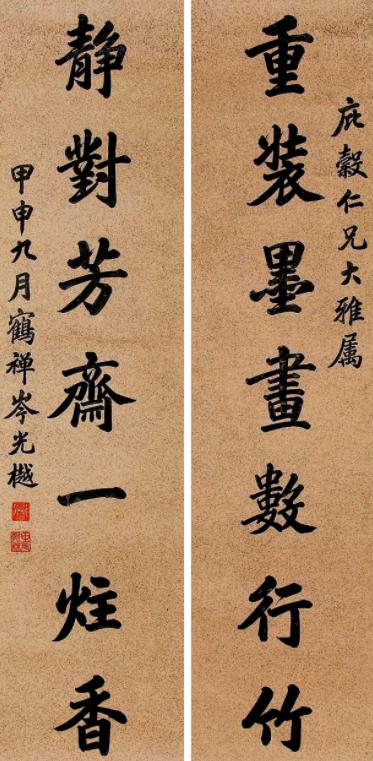 庇穀仁兄大雅属
重裝墨畫數行竹
靜對芳齋一炷香
甲申九月鶴禅岑光樾